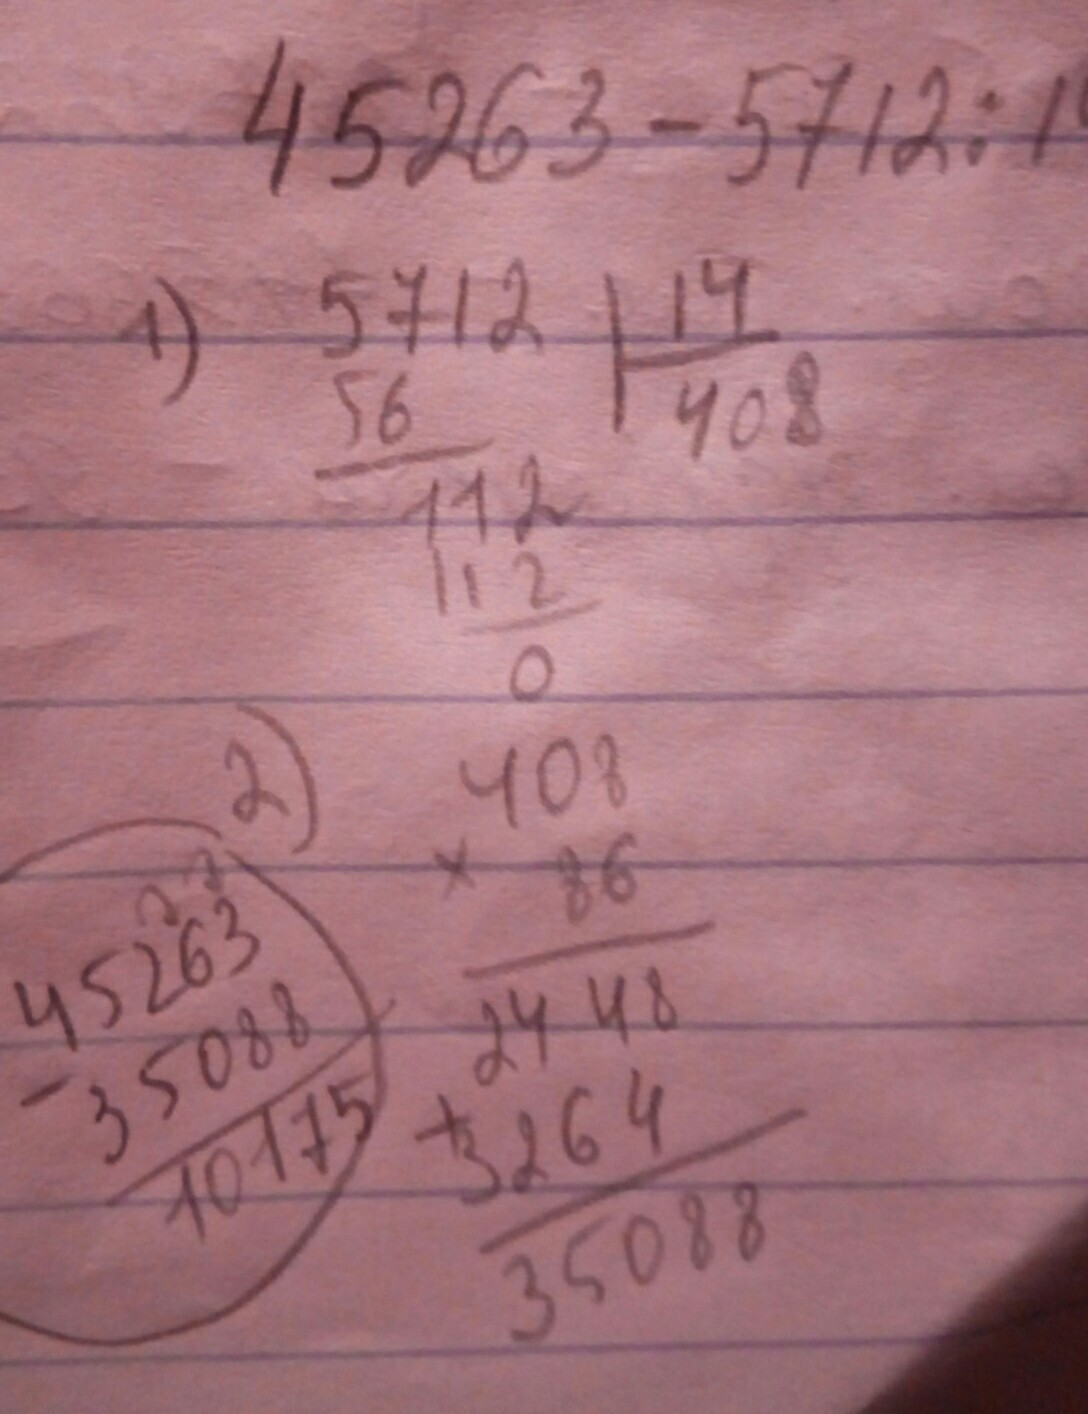 45263-5712:1
1) 5712 14
56 408
112
112
0
2) 408
× 86
2448
+3264
35088
45263
-35088
10175